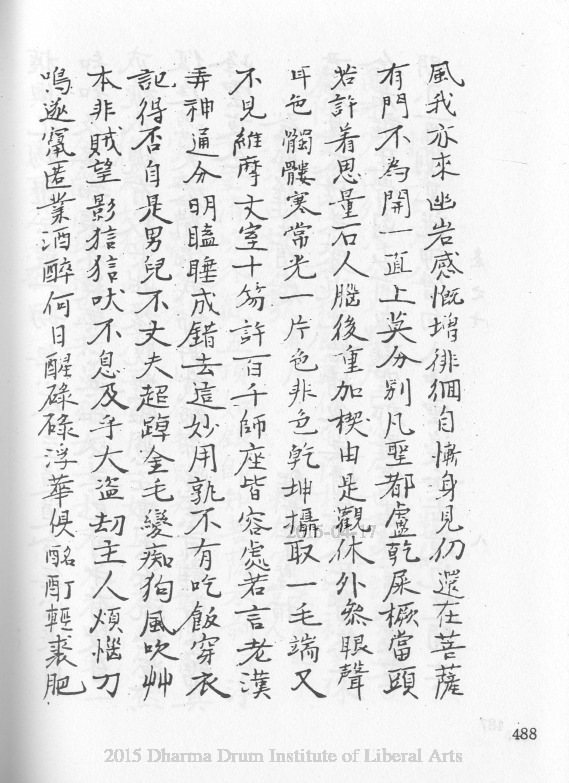 風我亦來幽岩感慨增徘徊自慚身見仍還在菩薩
有門不為開一直上莫分別凡聖都盧乾屎橛當頭
若許着思量石人腦後重加楔由是觀休外參眼聲
耳色髑髏寒常光一片色非色乾坤攝取一毛端又
不見維摩丈室十笏許百千師座皆容處若言老漢
弄神通分明瞌睡成錯去這妙用孰不有吃飯穿衣
記得否自是男兒不丈夫超蹕金毛變痴狗風吹艸
本非賊望影狺狺吠不息及乎大盜劫主人煩惱刀
鳴遂竄匿業酒醉何日醒碌碌浮華俱酩酊輕裘肥
488
2015-04-17
2015 Dharma Drum Institute of Liberal Arts